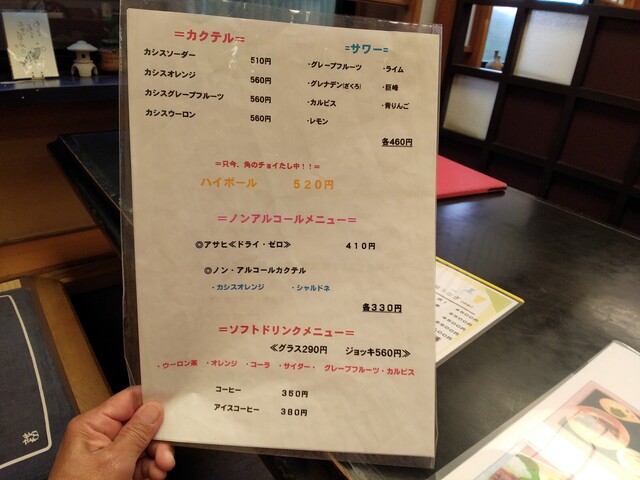 ＝カクテル＝
カシスソーダー 510円
カシスオレンジ 560円
カシスグレープフルーツ 560円
カシスウーロン 560円
＝サワー＝
・グレープフルーツ ・ライム
・グレナデン(ざくろ) ・巨峰
・カルピス ・青りんご
・レモン
各460円
＝只今、角のチョイたし中！！＝
ハイボール ５２０円
＝ノンアルコールメニュー＝
◎アサヒ≪ドライ・ゼロ≫ ４１０円
◎ノン・アルコールカクテル
・カシスオレンジ ・シャルドネ
各３３０円
＝ソフトドリンクメニュー＝
≪グラス290円 ジョッキ560円≫
・ウーロン茶 ・オレンジ ・コーラ ・サイダー・ グレープフルーツ・カルピス
コーヒー ３５０円
アイスコーヒー ３８０円